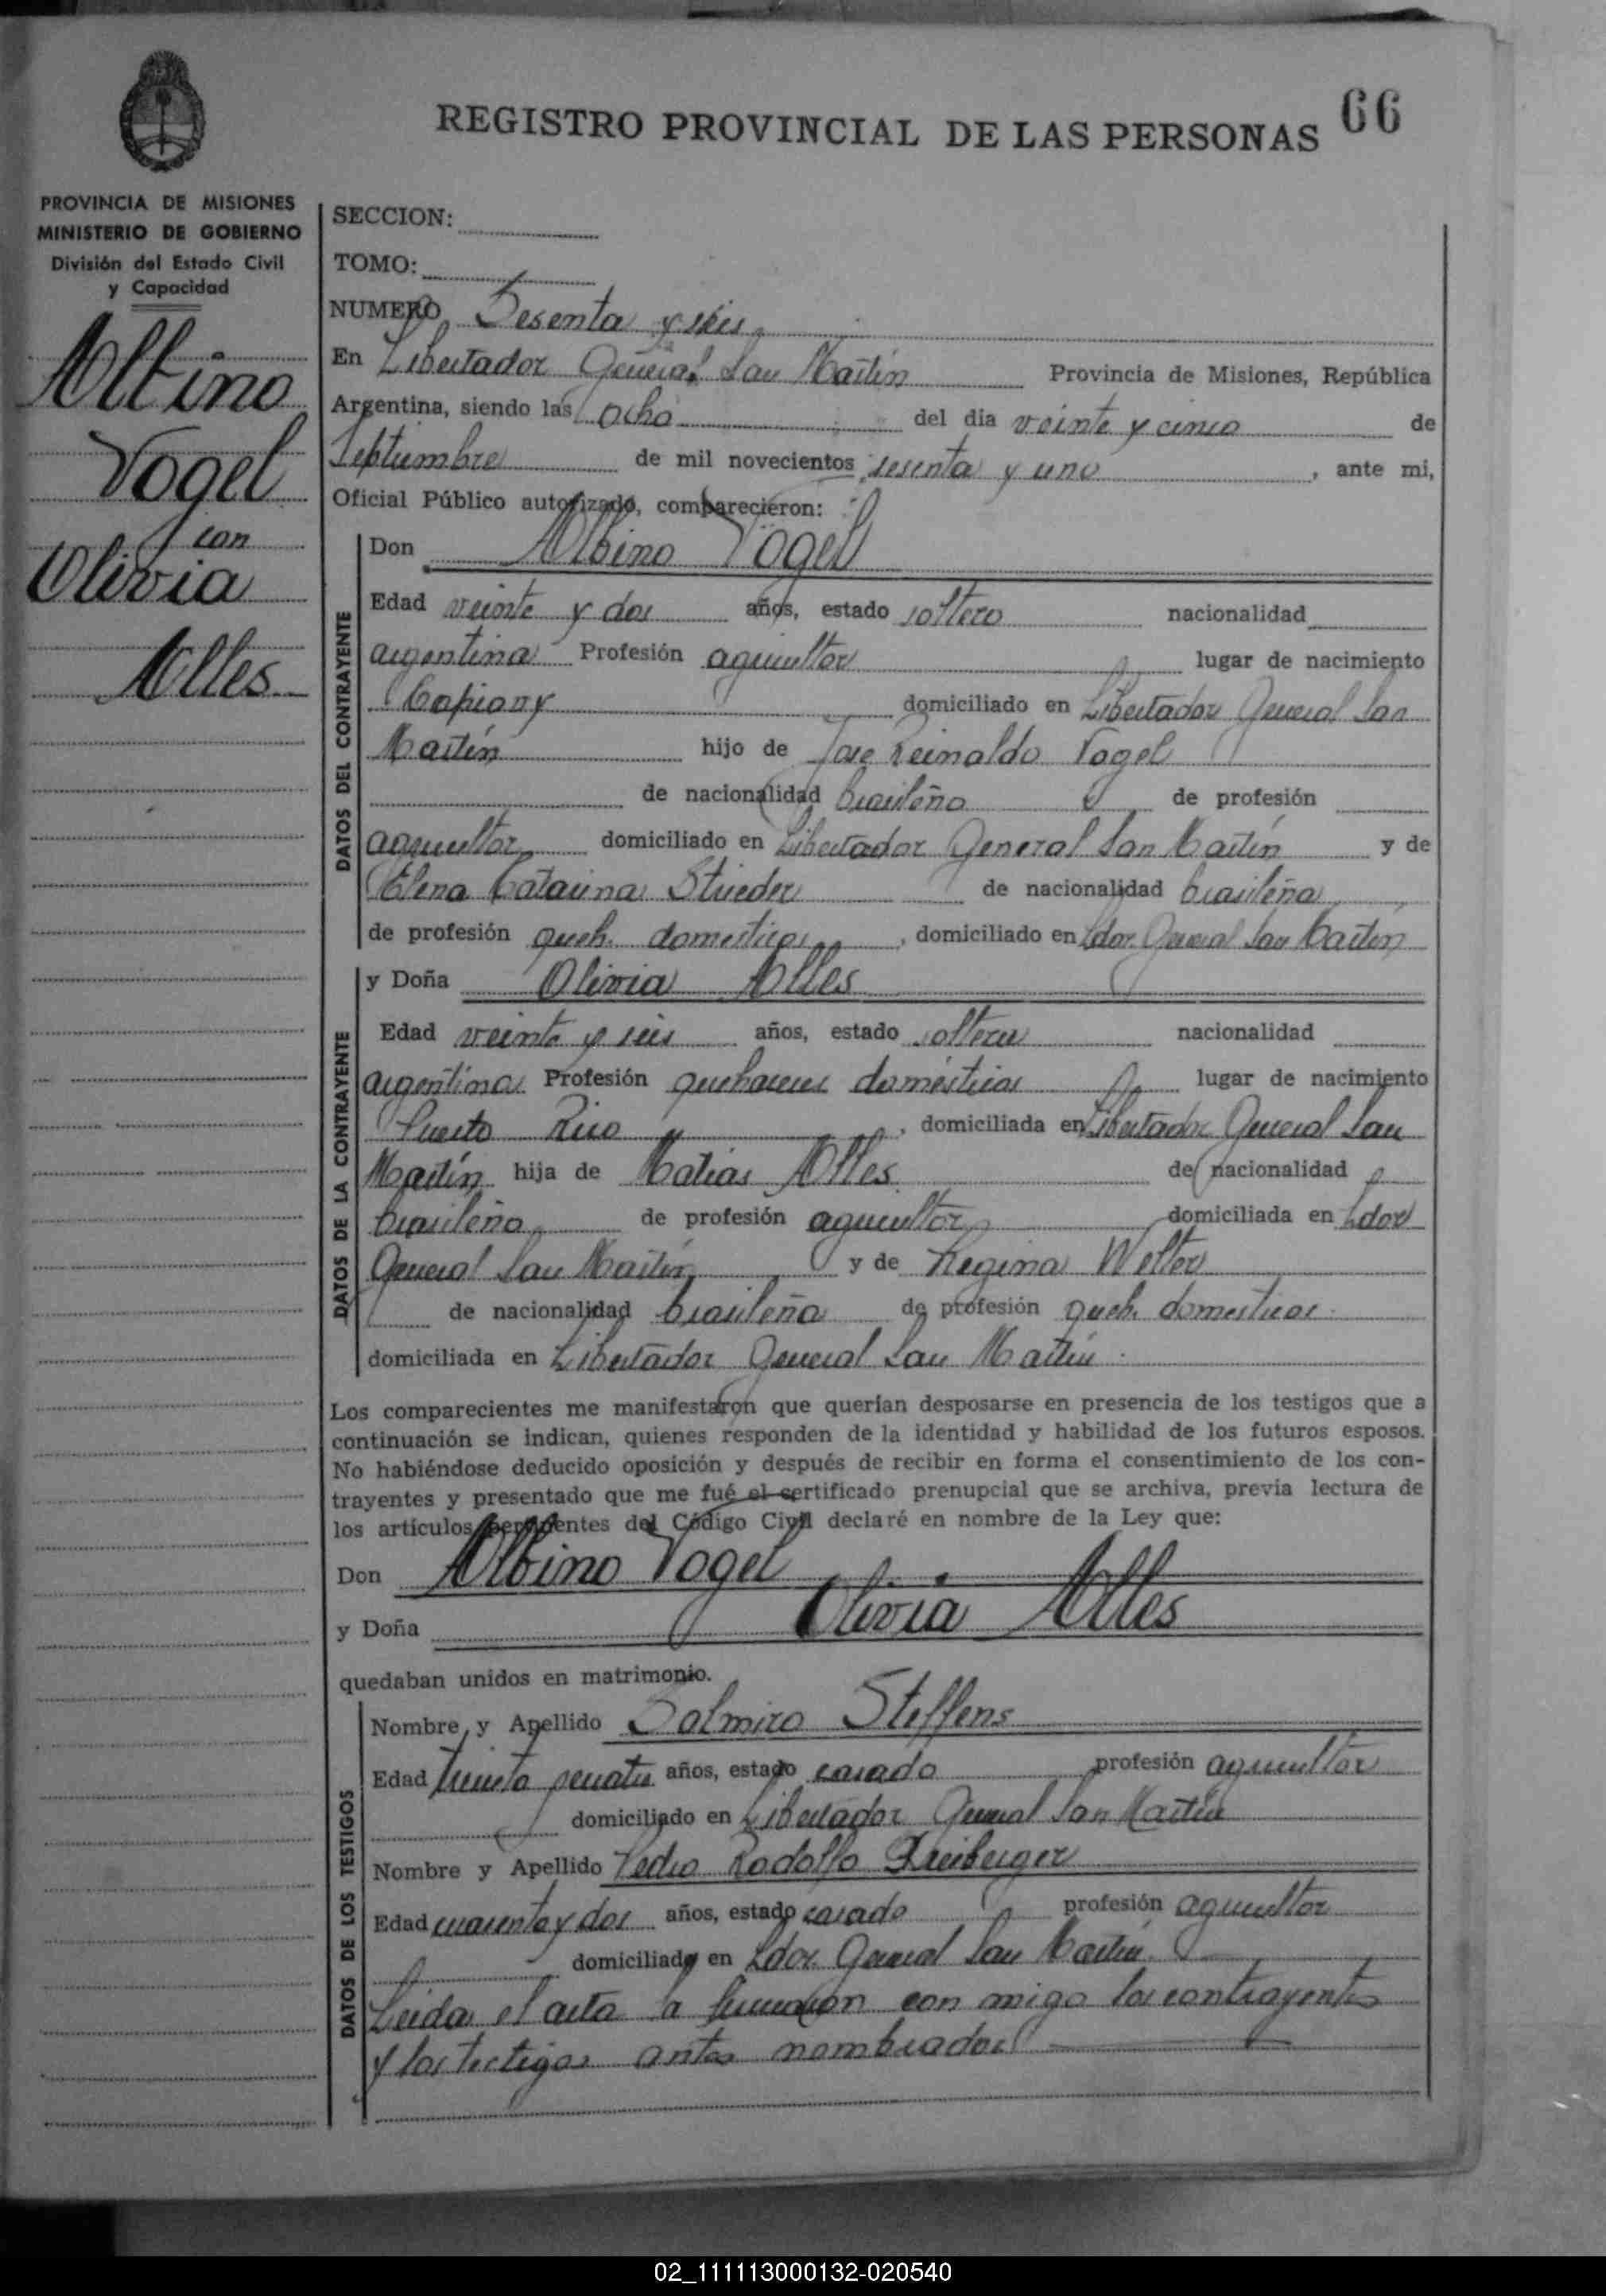 REGISTRO PROVINCIAL DE LAS PERSONAS 66
PROVINCIA DE MISIONES
MINISTERIO DE GOBIERNO
División del Estado Civil
y Capacidad
Albino
Vogel
con
Olivia
Alles
SECCION:
TOMO:
NUMERO Sesenta y seis
En Libertador General San Martín Provincia de Misiones, República
Argentina, siendo las ocho del dia veinte y cinco de
Septiembre de mil novecientos sesenta y uno, ante mi,
Oficial Público autorizado, comparecieron:
DATOS DEL CONTRAYENTE
Don Albino Vogel
Edad veinte y dos años, estado soltero nacionalidad
argentina Profesión agricultor lugar de nacimiento
Capiovy domiciliado en Libertador General San
Martín hijo de Jose Reinaldo Vogel
de nacionalidad brasileña de profesión
agricultor domiciliado en Libertador General San Martín y de
Elena Catarina Strieder de nacionalidad brasileña
de profesión queh. domesticos, domiciliado en Ldor. General San Martín
DATOS DE LA CONTRAYENTE
y Doña Olivia Alles
Edad veinte y seis años, estado soltera nacionalidad
argentina Profesión quehaceres domésticos lugar de nacimiento
Puerto Rico, domiciliada en Libertador General San
Martín hija de Matias Alles de nacionalidad
brasileña de profesión agricultor domiciliada en Ldor
General San Martín y de Regina Welter
de nacionalidad brasileña de profesión queh. domesticos
domiciliada en Libertador General San Martín
Los comparecientes me manifestaron que querían desposarse en presencia de los testigos que a
continuación se indican, quienes responden de la identidad y habilidad de los futuros esposos.
No habiéndose deducido oposición y después de recibir en forma el consentimiento de los con-
trayentes y presentado que me fué el certificado prenupcial que se archiva, previa lectura de
los artículos pertinentes del Código Civil declaré en nombre de la Ley que:
Don Albino Vogel
y Doña Olivia Alles
quedaban unidos en matrimonio.
DATOS DE LOS TESTIGOS
Nombre y Apellido Balmiro Steffens
Edad treinta y cuatro años, estado casado profesión agricultor
domiciliado en Libertador General San Martín
Nombre y Apellido Pedro Rodolfo Freiberger
Edad cuarenta y dos años, estado casado profesión agricultor
domiciliado en Ldor. General San Martín
Leida el acta la firmaron con migo los contrayentes
y los testigos antes nombrados
02_111113000132-020540